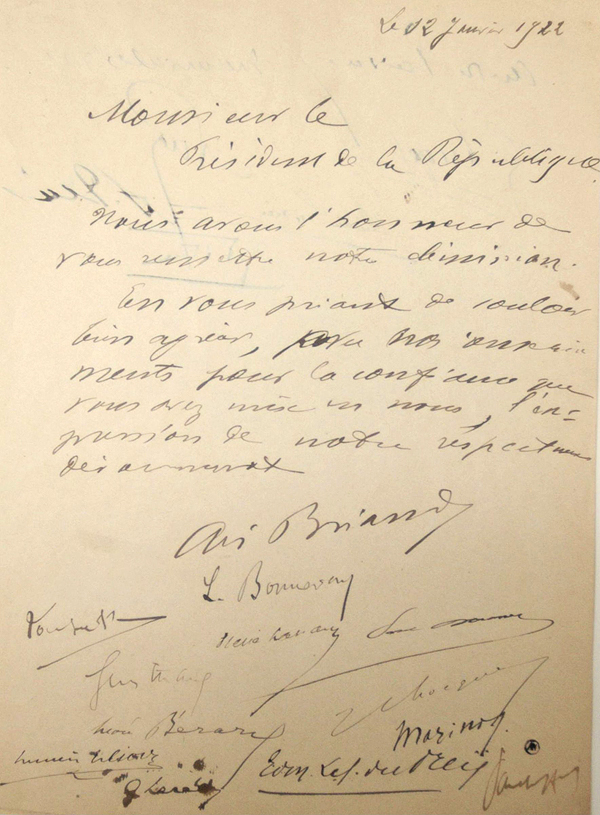 Le 12 Janvier 1922
Monsieur le
Président de la République
Nous avons l'honneur de
vous remettre notre démission.
En vous priant de vouloir
bien agréer, avec nos remercie
ments pour la confiance que
vous avez mise en nous, l'ex-
pression de notre respectueux
dévouement
Ari Briand
L. Bonnevay
Doumer
Léon Bérard
Maringer
Edm. Lef. du Prey